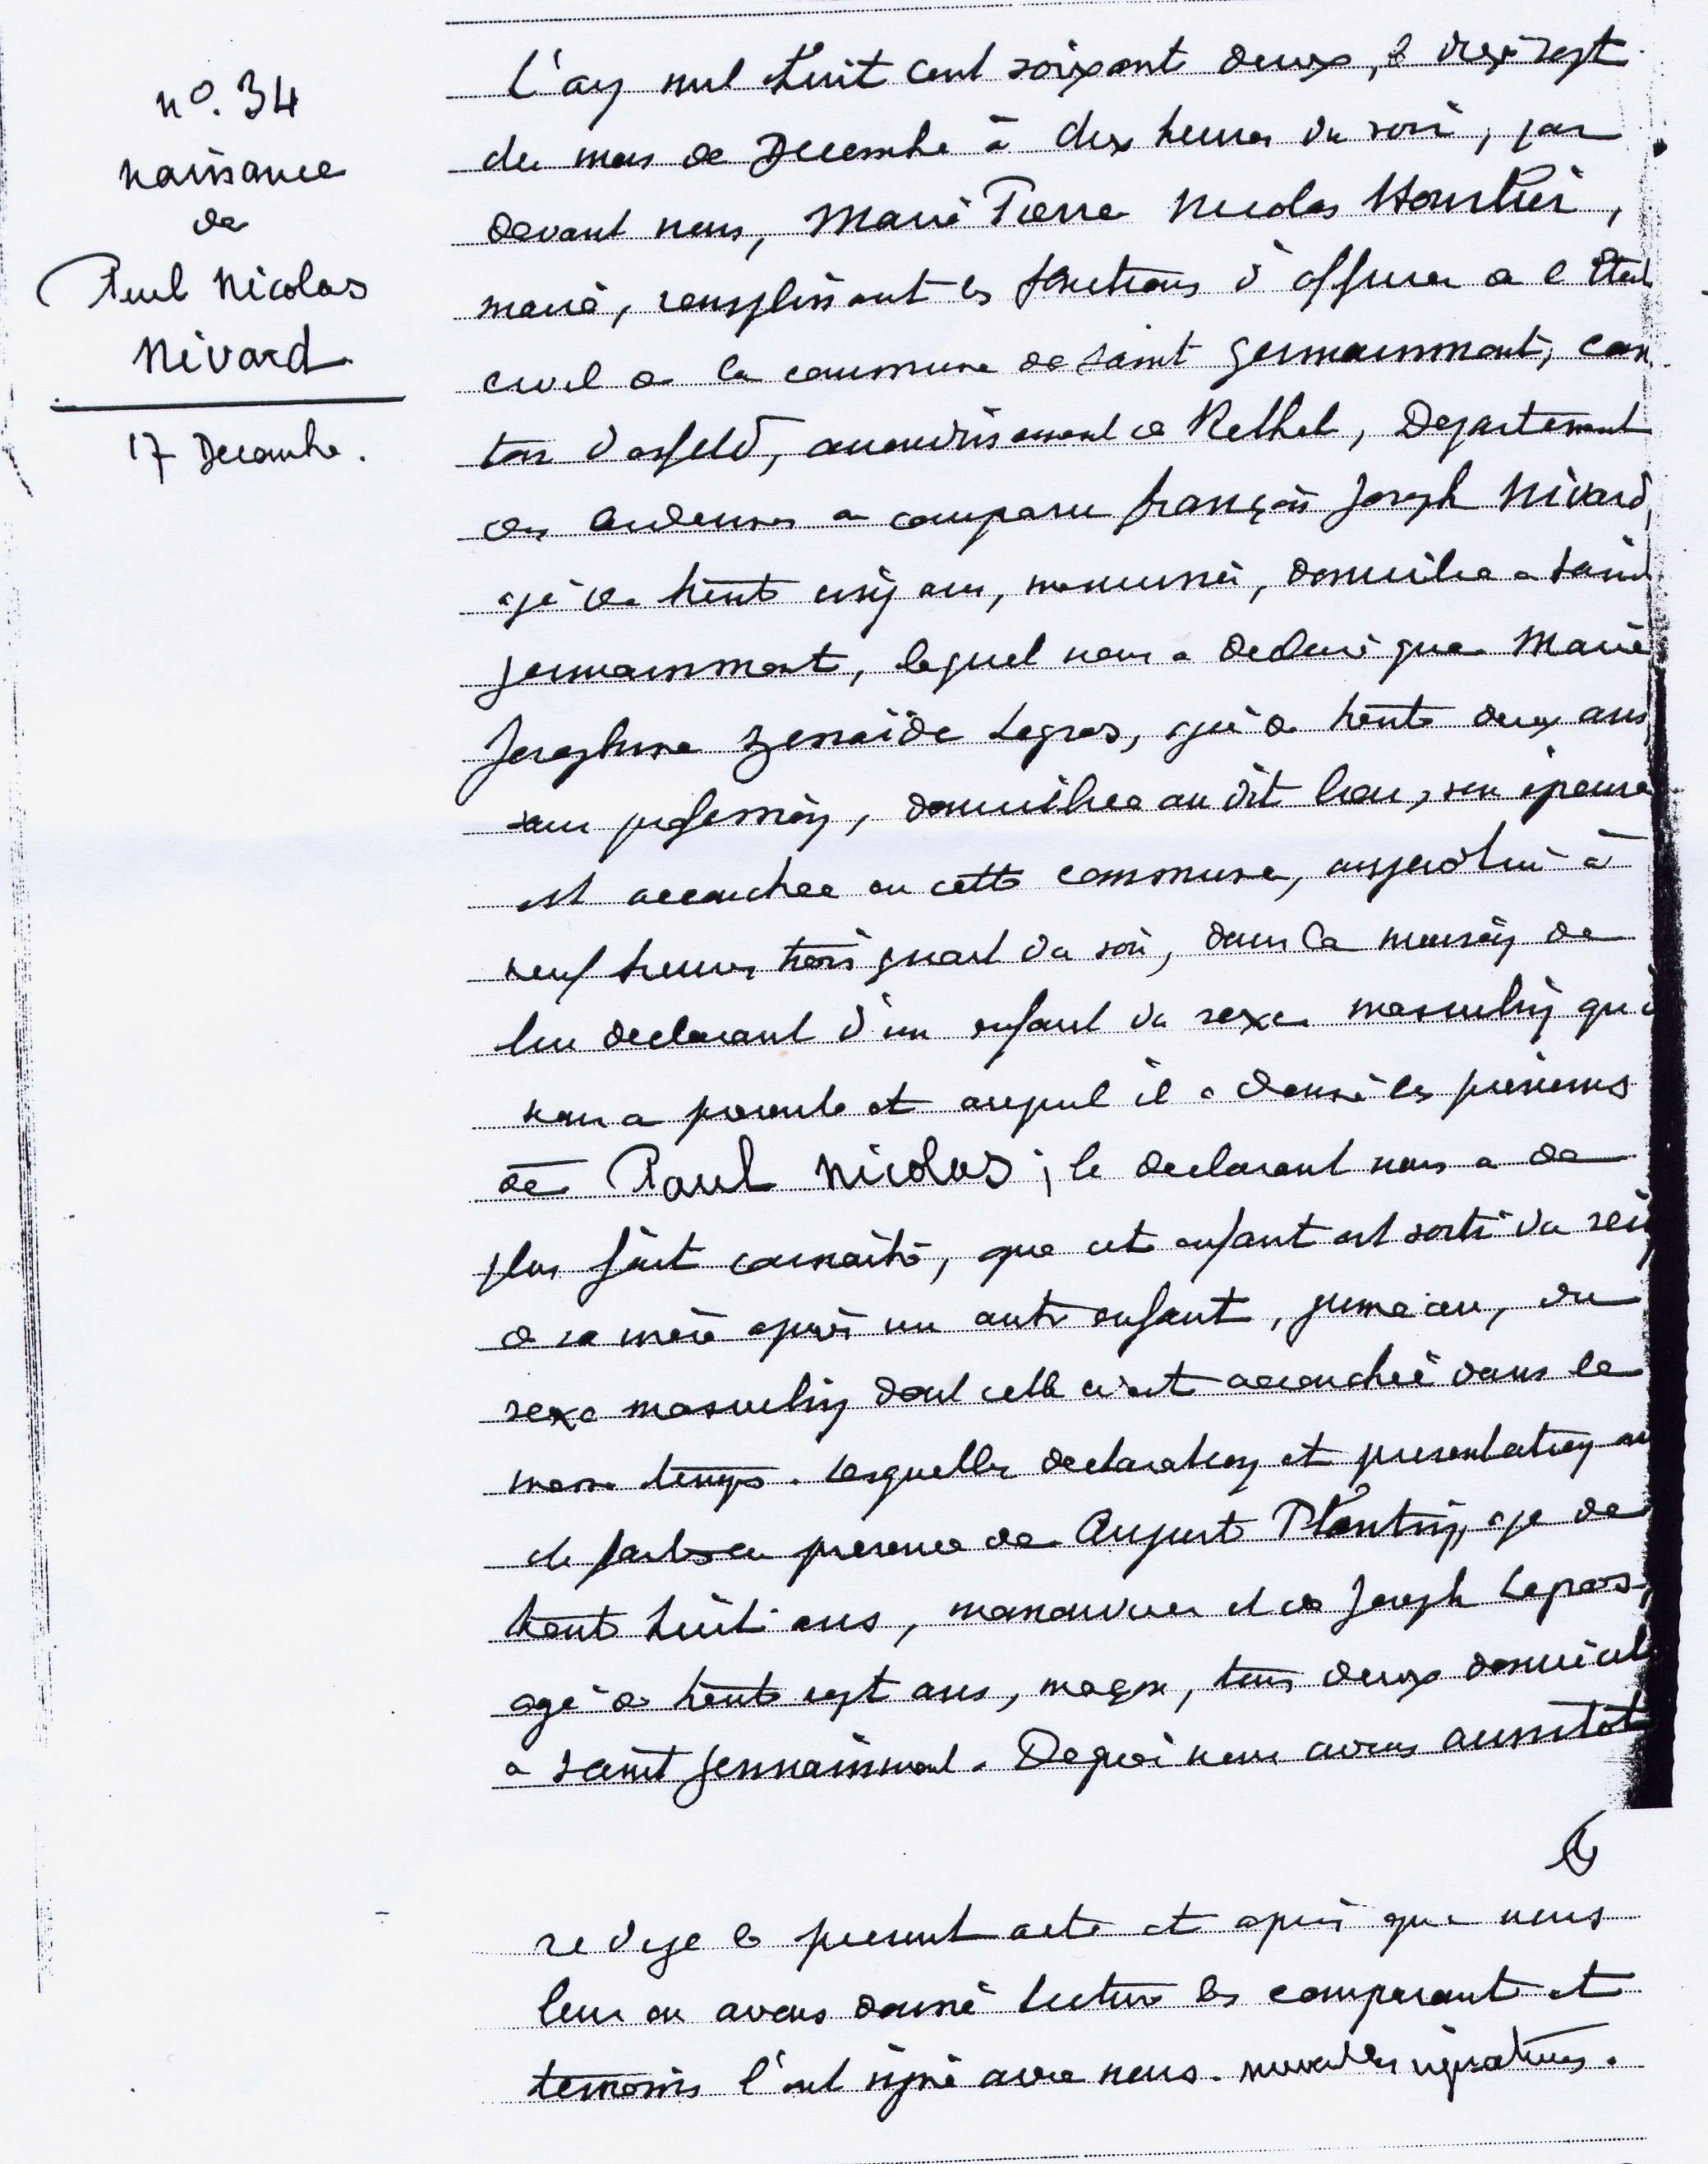 n°. 34
naissance
de
Paul Nicolas
Nivard
17 Decembre.
L'an mil huit cent soixante deux, le dix sept
du mois de Decembre à dix heures du soir, par
devant nous, Marie Pierre Nicolas Hourlier,
maire, remplissant les fonctions d'officier de l'état
civil de la commune de Saint Germainmont, can
ton d'asfeld, arrondissement de Rethel, Departement
des ardennes a comparu françois Joseph Nivard,
agé de trente cinq ans, manouvrier, domicilié a Saint
germainmont, lequel nous a declaré que Marie
Josephine Zenaïde Legros, agée de trente deux ans
sans profession, domiciliée au dit lieu, son épouse
est accouchée en cette commune, aujourd'hui à
neuf heures trois quart du soir, dans la maison de
lui declarant d'un enfant du sexe masculin qu'il
nous a presenté et auquel il a donné les prénoms
de Paul Nicolas; le declarant nous a de
plus fait connaitre, que cet enfant est sorti du sein
de sa mère après un autre enfant, jumeau, du
sexe masculin dont celle ci est accouchée dans le
meme temps. Lesquelles declaration et presentation
faites en presence de August Plantin, agé de
trente huit ans, manouvrier et de Joseph Legros,
agé de trente sept ans, maçon, tous deux domiciliés
a Saint Germainmont. De quoi nous avons aussitôt
redigé le present acte et après que nous
leur en avons donné lecture les comparant et
temoins l'ont signé avec nous. suivent les signatures.